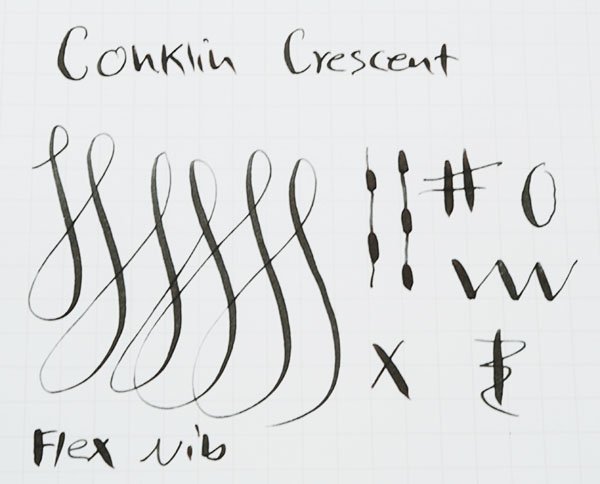 Conklin Crescent
# 0
X
Flex Nib